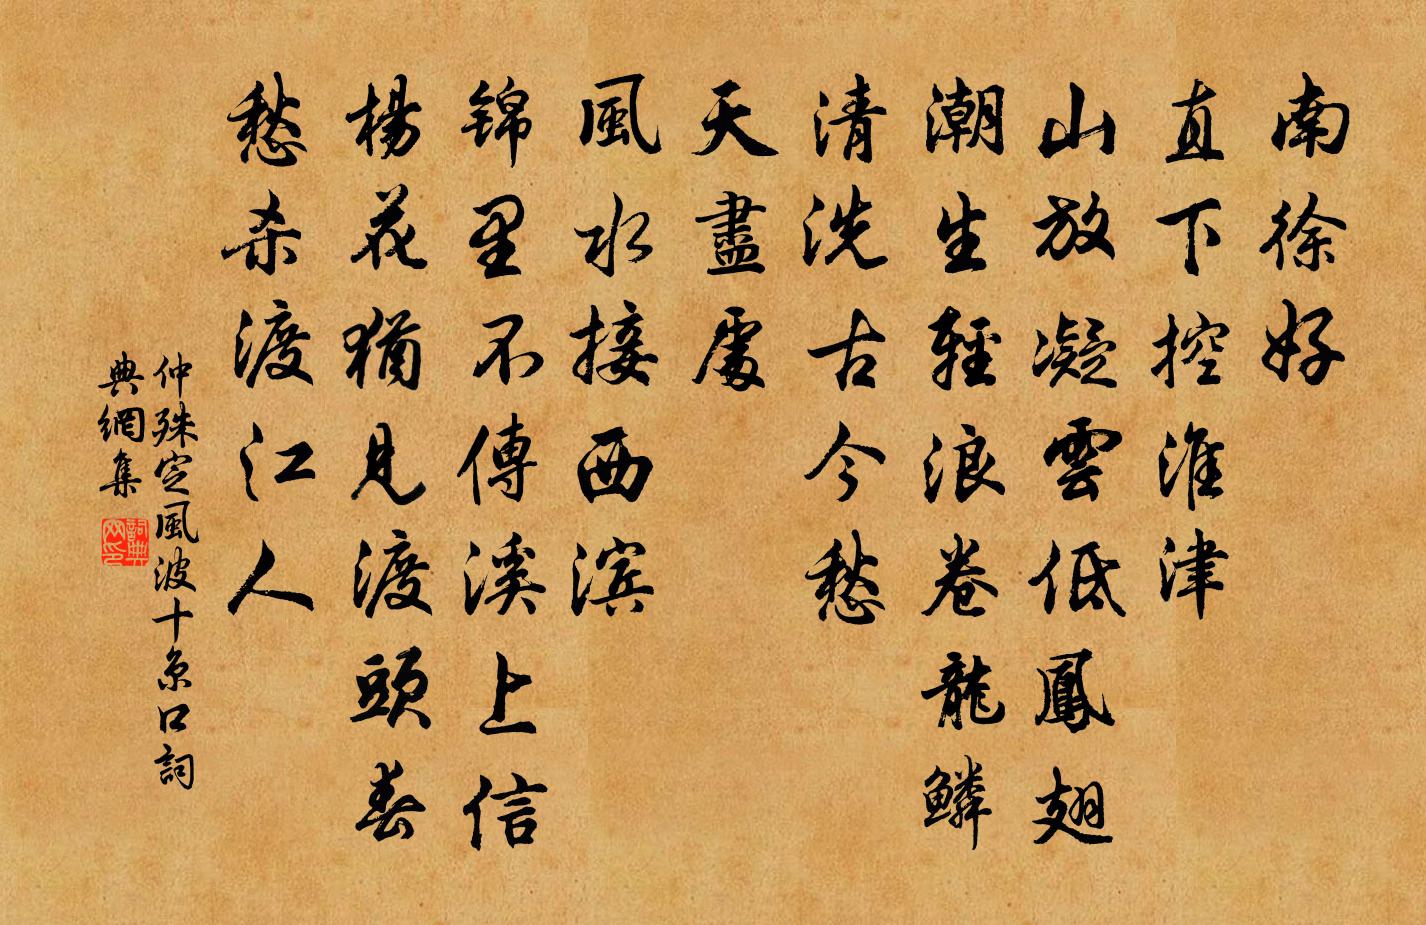 南徐好
直下控淮津
山放凝雲低鳳翅
潮生輕浪卷龍鱗
清洗古今愁
天盡處
風水接西滨
锦里不傳溪上信
楊花猶見渡頭春
愁杀渡江人
仲殊定風波十京口詞
典網集
詞典網印